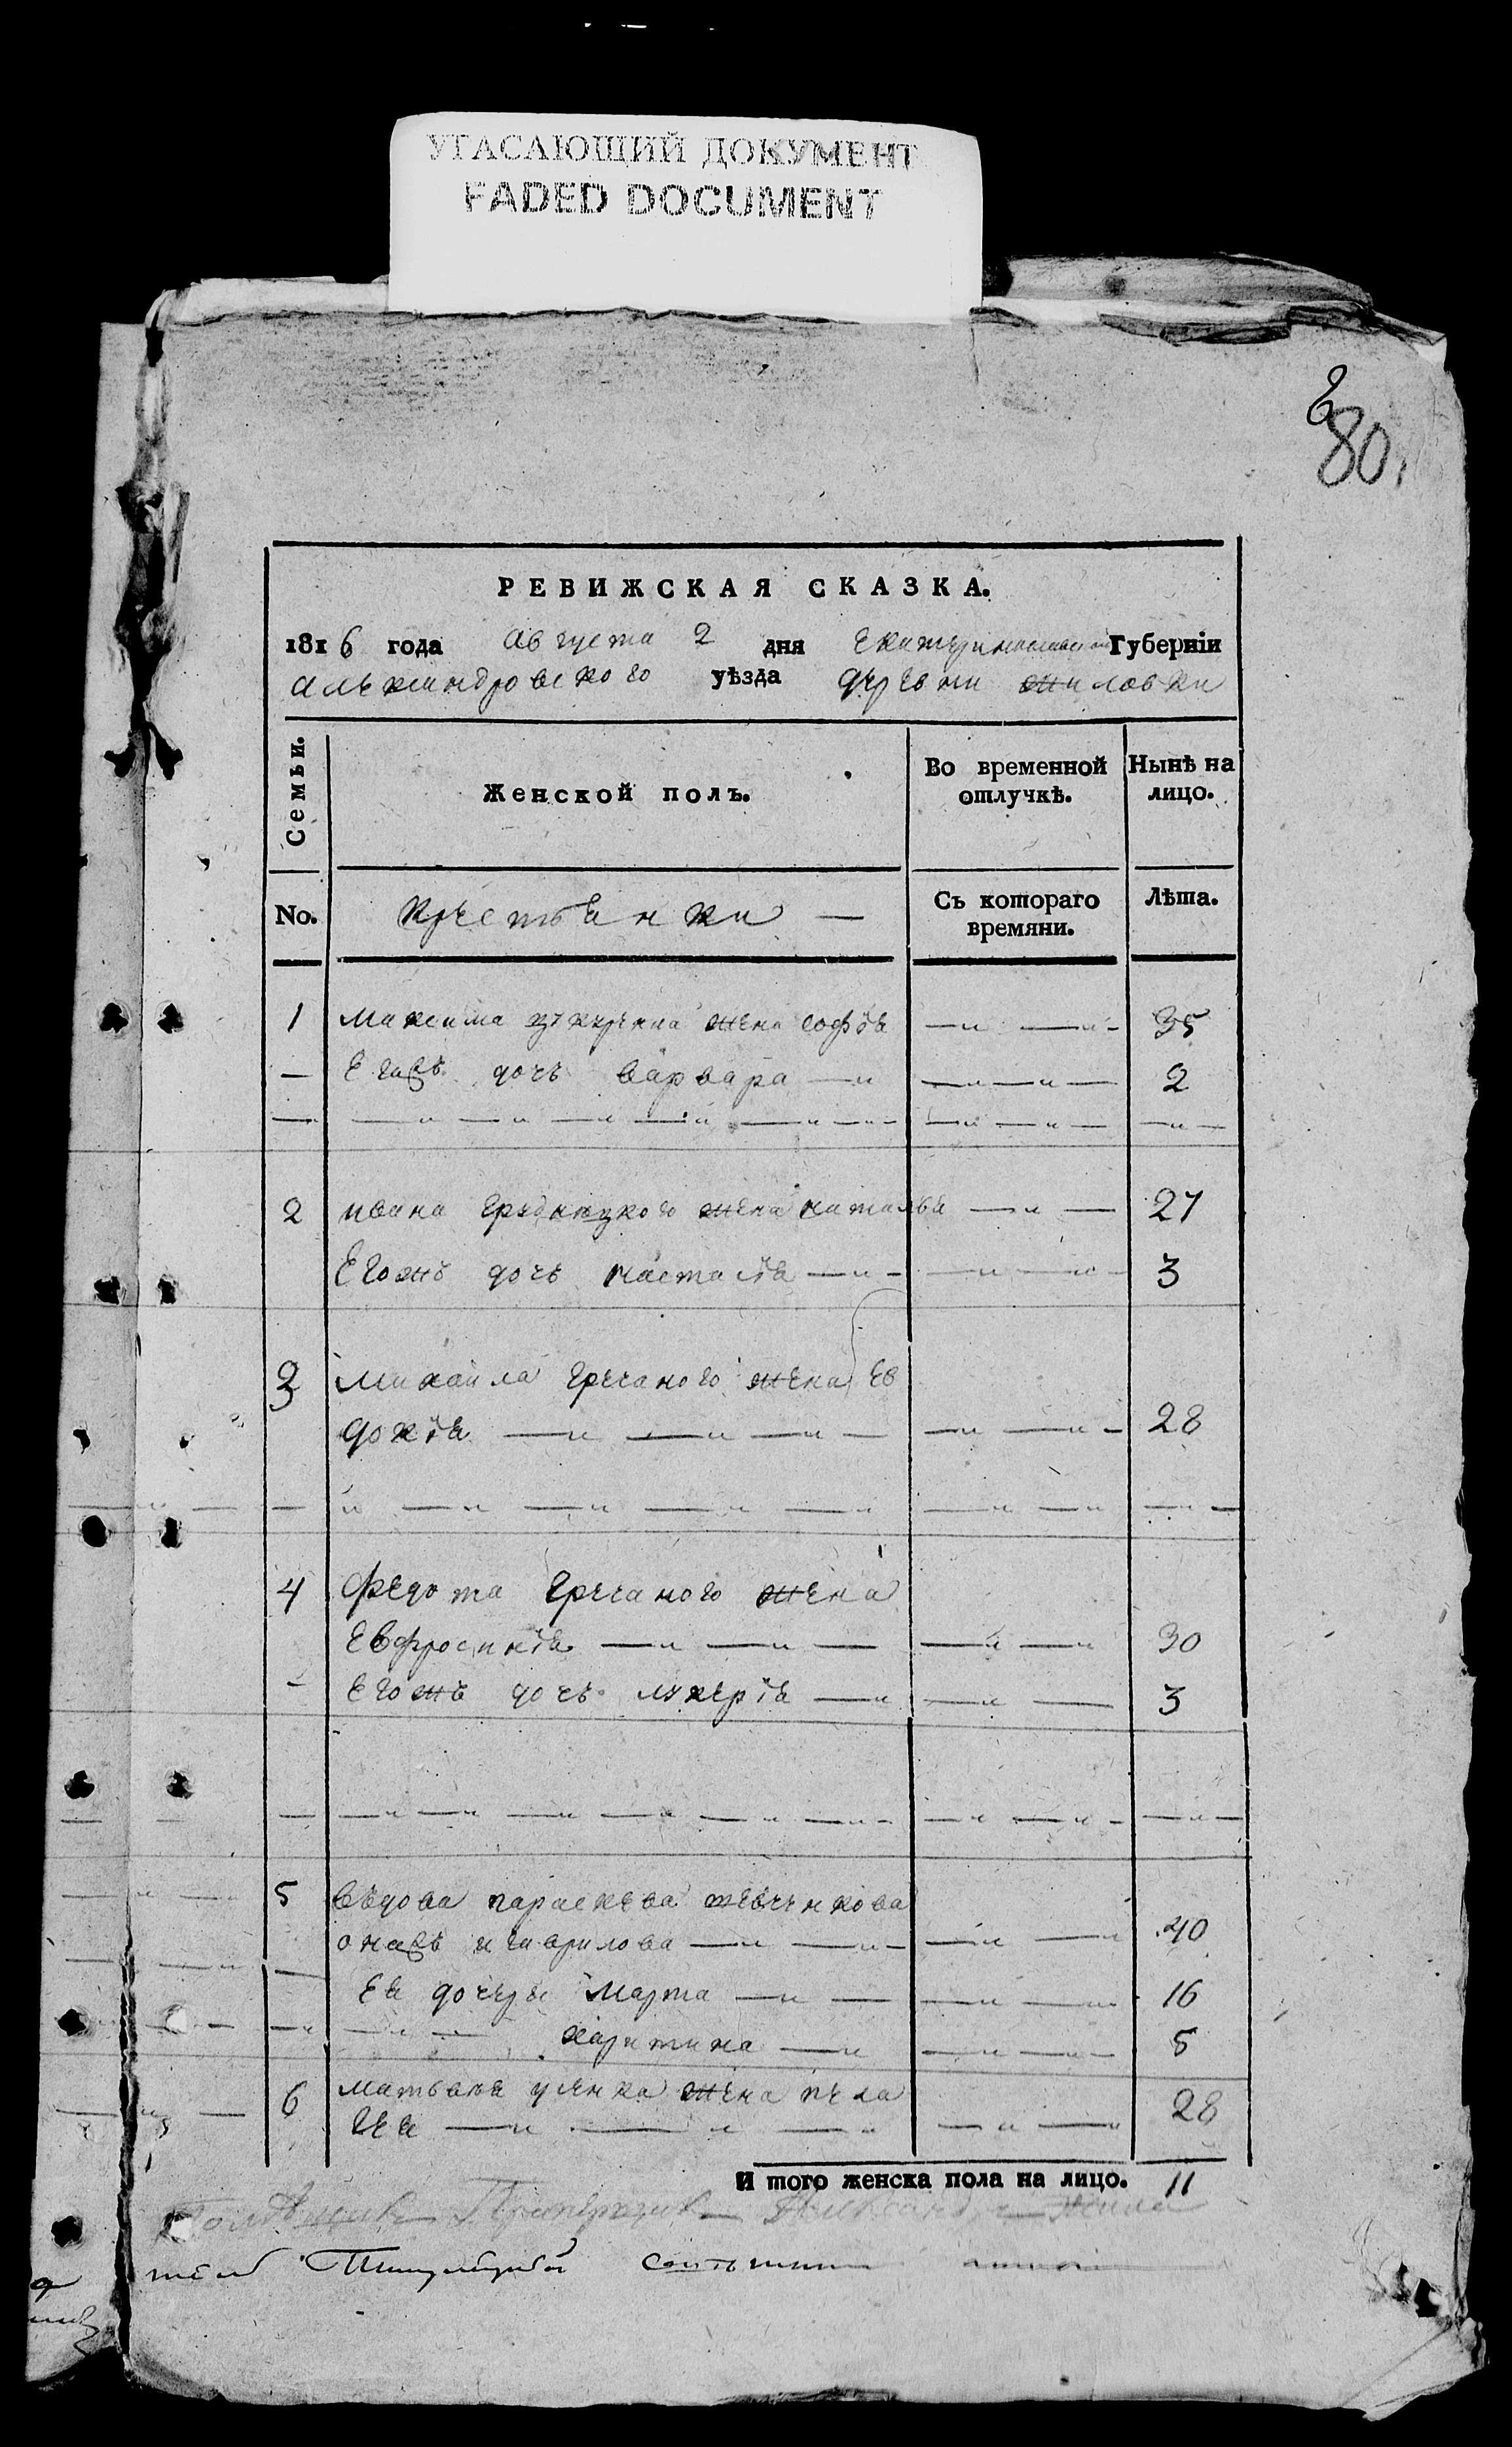 УГАСАЮЩИЙ ДОКУМЕНТ
FADED DOCUMENT
80.
РЕВИЖСКАЯ СКАЗКА.
1816 года августа 2 дня Екатеринославской Губерніи
александровского уѣзда деревни жиловки
Семьи.
Женской полъ.
Во временной отлучкѣ.
Нынѣ на лицо.
No.
крестьянки —
Съ котораго времяни.
Лѣта.
1 максима жена софія 35
— Егожъ дочь варвара 2
2 ивана жена наталья 27
Егожъ дочь настасія 3
3 михаила гречаного жена Ев
докія 28
4 федота гречаного жена
Евфросинія 30
Егожъ дочь лукерія 3
5 вѣдова параскева шевченкова
онажъ и гаврилова 40
Ея дочери марта 16
харитина 5
6 матвѣя уленка жена пела
гея 28
И того женска пола на лицо. 11